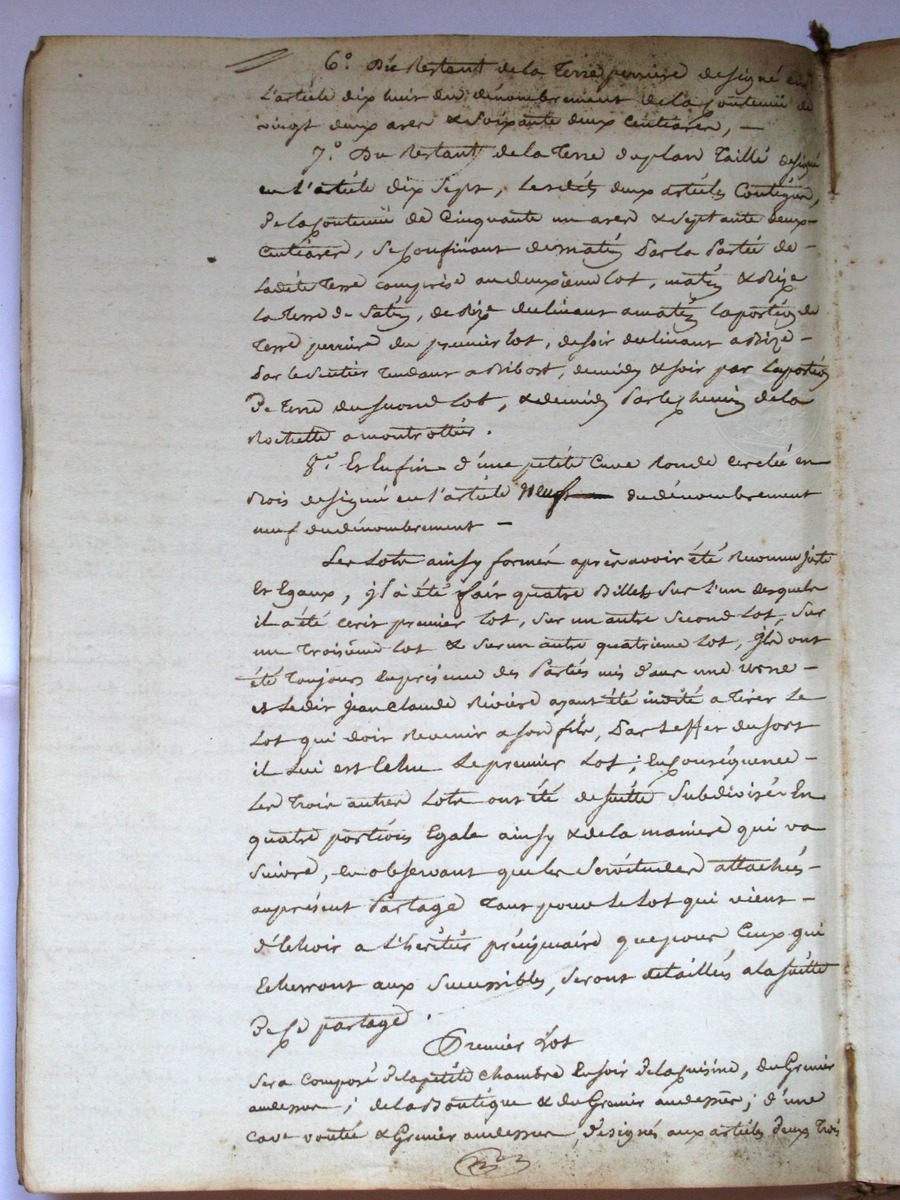 6.° Du Restant de la Terre perrière designé en
L'article dix huit du dénombrement de la Contenüe de
vingt deux ares & soixante deux Centiares, —
7.° Du Restant de la Terre du plan Taillé designé
en l'article dix sept, Lesdits deux articles Contigus,
de la Contenüe de Cinquante un ares & septante deux
Centiares, se confinant de matin Par la Partie de
Ladite Terre comprise au deuxième lot, matin & Bize
la Terre de de Bize declinant a matin la portion de
Terre perrière du premier lot, de soir declinant a Bize
Par le Sentier Tendant a Ribost, de midy & soir par la portion
De Terre du second Lot, & de midy Par le chemin de la
Rochette a montrottier.
8.° Et Enfin d'une petite Cuve Ronde cerclée en
Bois designé en l'article neuf du dénombrement
neuf du dénombrement —
Les Lots ainsy formés après avoir été reconnu juste
Et Egaux, jl a été fait quatre Billets sur l'un desquels
il a été écrit premier Lot, sur un autre second Lot, sur
un Troisième Lot & sur un autre quatrième Lot, jls ont
été Toujours en présence des Parties mis dans une urne
et Ledit Jean Claude Rivière ayant été invité a Tirer Le
Lot qui doit Revenir a son fils, Par L'effet du sort
il Lui est Echu Le premier Lot; En conséquence
Les Trois autres Lots ont été de suitte Subdivisés En
quatre portions Egale ainsy & de la maniere qui va
Suivre, en observant que les Servitudes attachés
au présent Partage Tant pour le Lot qui vient
d'Echoir a L'héritier préciputaire que pour Ceux qui
Echerront aux Successibles, seront détaillés a la suitte
De Ce partage.
Premier Lot
Sera Composé de la petite Chambre En soir de la Cuisine, du Grenier
au dessus; de la Boutique & du Grenier au dessus; d'une
Cave voutée & Grenier au dessus, designés aux articles deux Trois